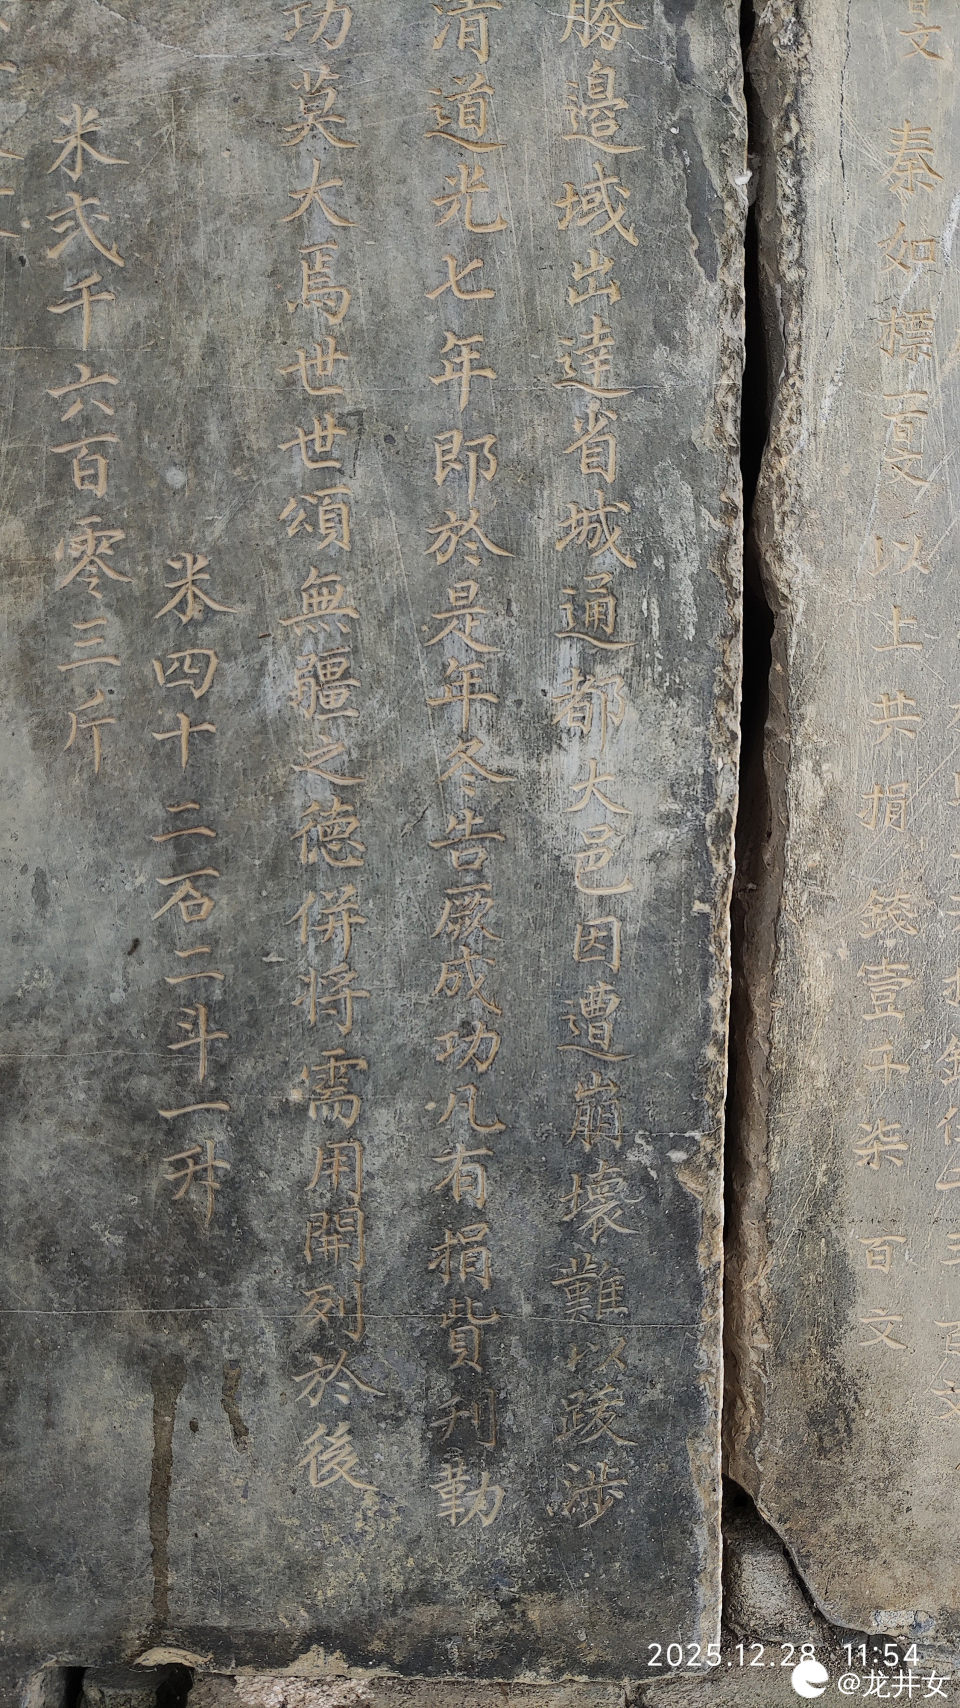 百文 秦如標一百文 以上共捐錢壹千柒百文
勝邊域出達省城通都大邑因遭崩壞難以跋涉
清道光七年即於是年冬告厥成功凡有捐貲刊勒
功莫大焉世世頌無疆之德併將需用開列於後
米四十二石二斗一升
米弍千六百零三斤
2025.12.28 11:54
@龙井女